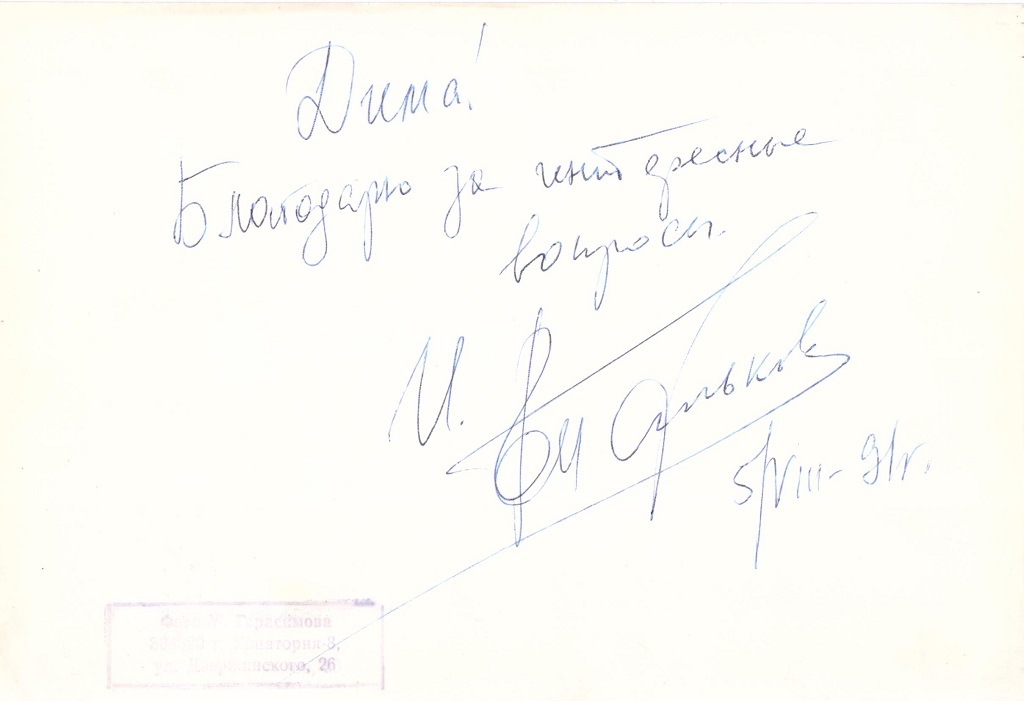 Дима!
Благодарю за интересные
вопросы.
И.
5/VIII-91г.
Фото Герасимова
г. Евпатория-8,
ул. Дзержинского, 26